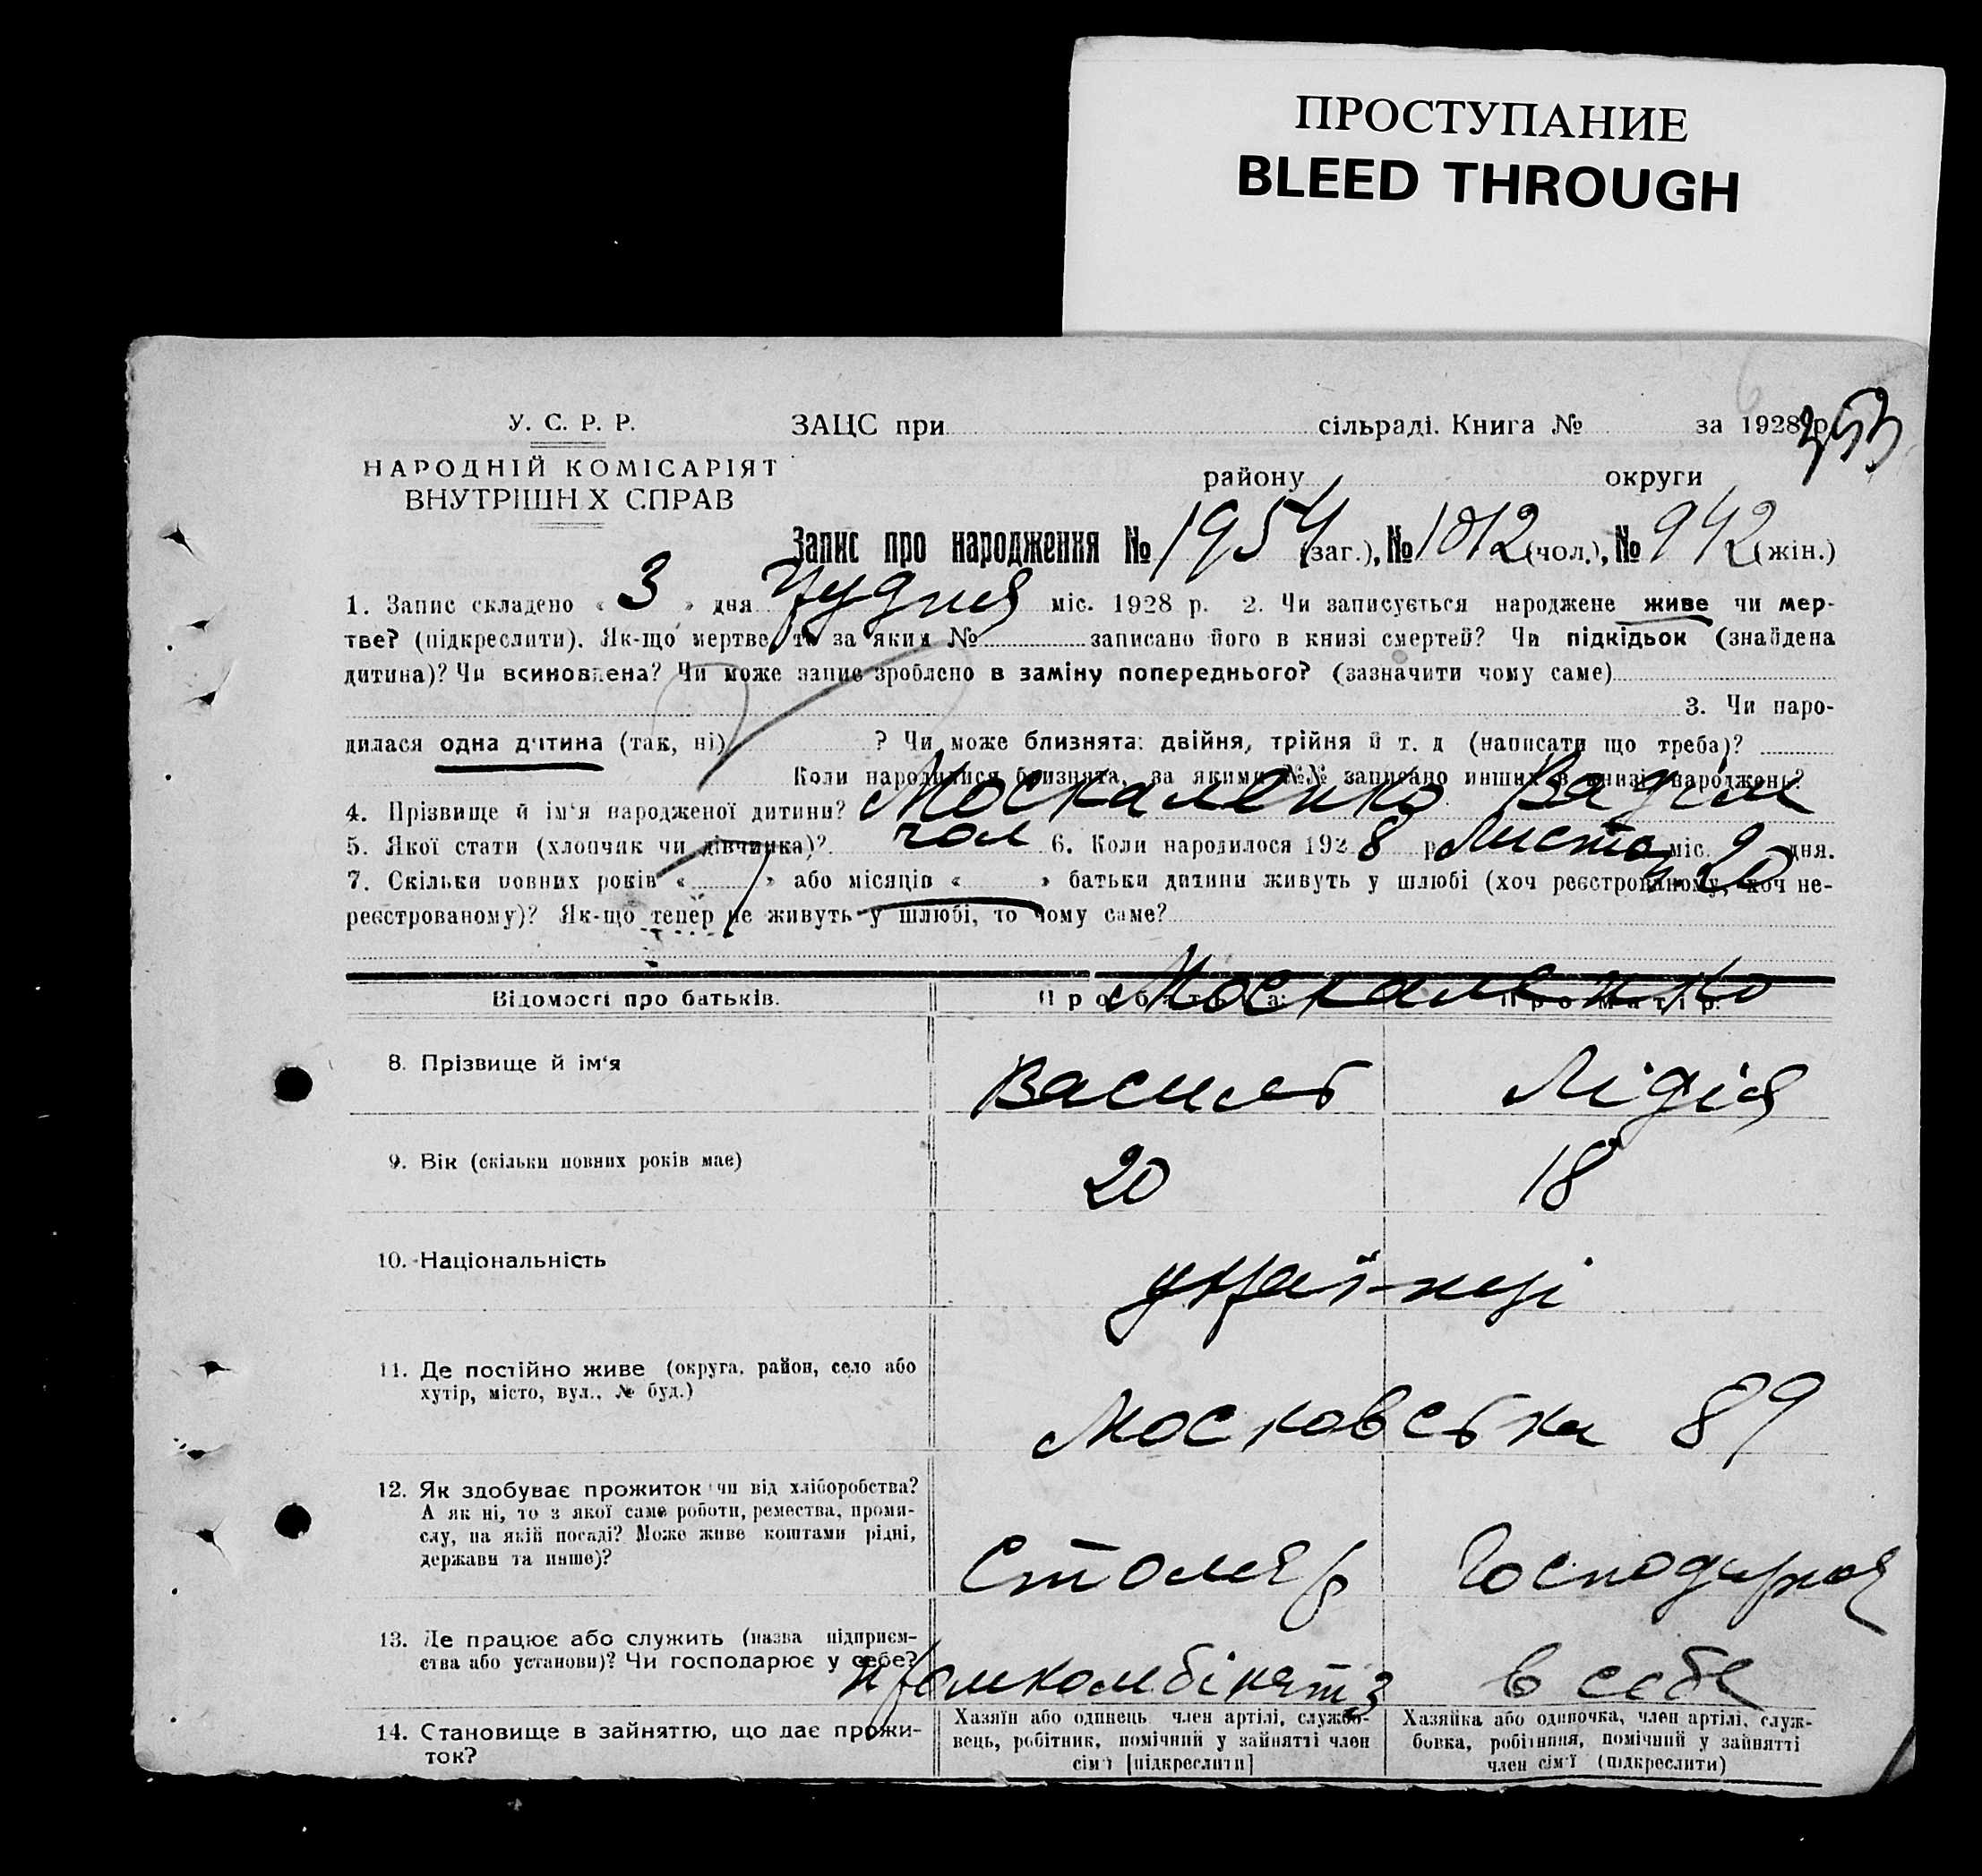 ПРОСТУПАНИЕ
BLEED THROUGH
353
У. С. Р. Р.
ЗАЦС при сільраді. Книга № за 1928 р.
НАРОДНІЙ КОМІСАРІЯТ
району округи
ВНУТРІШН Х СПРАВ
Запис про народження № 1954 (заг.), № 1012 (чол.), № 942 (жін.)
1. Запис складено « 3 » дня Грудня міс. 1928 р. 2. Чи записується народжене живе чи мер-
тве? (підкреслити). Як-що мертве, то за яким № записано його в книзі смертей? Чи підкідьок (знайдена
дитина)? Чи всиновлена? Чи може запис зроблено в заміну попереднього? (зазначити чому саме)
3. Чи наро-
дилася одна дитина (так, ні) ? Чи може близнята: двійня, трійня й т. д (написати що треба)?
Коли народилися близнята, за якими №№ записано инших в книзі народжень?
4. Прізвище й ім'я народженої дитини? Москаленко Вадім
5. Якої стати (хлопчик чи дівчинка)? чол 6. Коли народилося 1928 р. Листоп. міс. 20 дня.
7. Скільки повних років « » або місяців « » батьки дитини живуть у шлюбі (хоч реєстрованому, хоч не-
реєстрованому)? Як-що тепер не живуть у шлюбі, то чому саме?
Відомості про батьків. Про батька: Про матір:
Москаленко
8. Прізвище й ім'я Василь Лідія
9. Вік (скільки повних років має) 20 18
10. Національність українці
11. Де постійно живе (округа, район, село або
хутір, місто, вул., № буд.)
Московська 89
12. Як здобуває прожиток чи від хліборобства?
А як ні, то з якої саме роботи, ремества, проми-
слу, на якій посаді? Може живе коштами рідні,
держави та инше)?
Столяр Господарка
13. Де працює або служить (назва підприєм-
ства або установи)? Чи господарює у себе?
промкомбінат 3 в себе
14. Становище в зайняттю, що дає прожи-
ток?
Хазяїн або одинець член артілі, службо-
вець, робітник, помічний у зайнятті член
сім'ї [підкреслити]
Хазяйка або одиночка, член артілі, служ-
бовка, робітниця, помічний у зайнятті
член сім'ї (підкреслити)